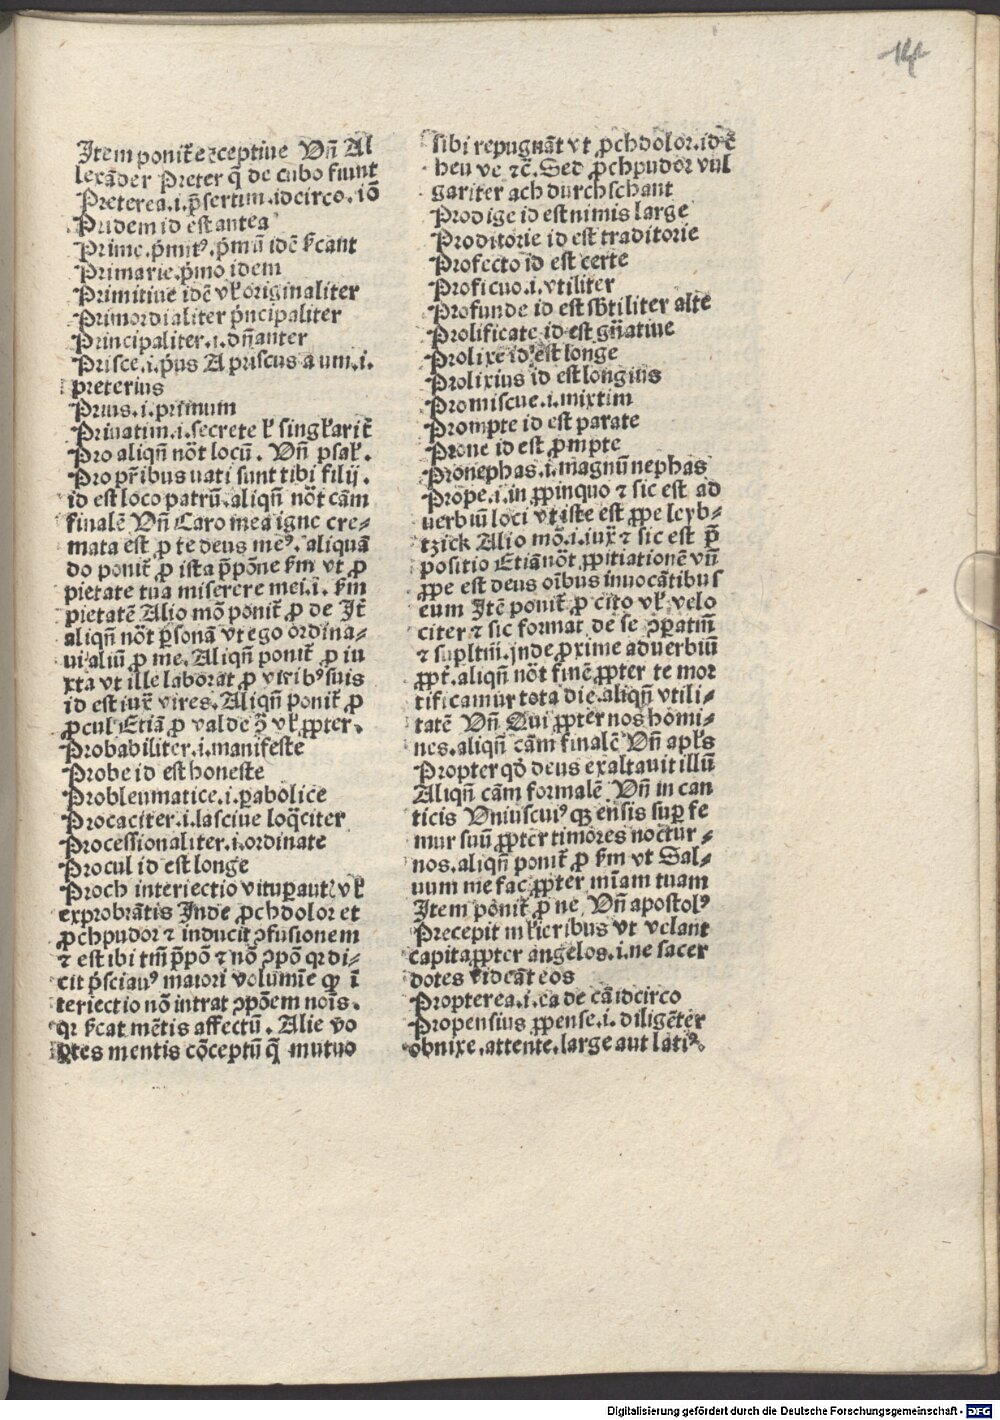 14
Item ponit᷑ exceptiue Vn̄ Al
lexāder Preter q̄ de cubo fiunt
Preterea.i.p̄sertim.idcirco.iō
Pridem id est antea
Prime.p̄mitꝰ.p̄mū idē ẜcant
Primarie.p̄mo idem
Primitiue idē vł originaliter
Primordialiter p̄ncipaliter
Principaliter.i.dn̄anter
Prisce.i.p̄us A priscus a um.i.
preterius
Prius.i.primum
Priuatim.i.secrete ł singłarit᷑
Pro aliqn̄ nōt locū. Vn̄ psał.
Pro pr̄ibus nati sunt tibi filij.
id est loco patrū.aliqn̄ nōt cām
finalē Vn̄ Caro mea igne cre⸗
mata est ꝓ te deus meꝰ. aliquā
do ponit᷑ ꝓ ista p̄pōne ẜm vt ꝓ
pietate tua miserere mei.i. ẜm
pietatē Alio mō ponit᷑ ꝓ de It᷑
aliqn̄ nōt ꝑsonā vt ego ordina⸗
ui aliū ꝓ me. Aliqn̄ ponit᷑ ꝓ iu
xta vt ille laborat ꝓ viribꝰ suis
id est iux᷑ vires. Aliqn̄ ponit᷑ ꝓ
ꝓcul Etiā ꝓ valde ꝫ vł ꝓpter.
Probabiliter.i.manifeste
Probe id est honeste
Probleumatice.i.ꝑabolice
Procaciter.i.lasciue loq̄citer
Processionaliter.i.ordinate
Procul id est longe
Proch interiectio vituꝑantꝭ vł
exprobrātis Inde ꝓchdolor et
ꝓchpudor ⁊ inducit ꝯfusionem
⁊ est ibi tm̄ p̄pō ⁊ nō ꝯpō qr di⸗
cit p̄scianꝰ maiori volumīe ꝙ ī
teriectio nō intrat ꝯpōem noīs.
qr ẜcat mētis affectū. Alie vo
ꝑtes mentis cōceptū q̄ mutuo
sibi repugnāt vt ꝓchdolor.id ē
heu ve ⁊c̄. Sed ꝓchpudor vul
gariter ach durchschant
Prodige id est nimis large
Proditorie id est traditorie
Profecto id est certe
Proficuo.i.vtiliter
Profunde id est sb̄tiliter alte
Prolificate id est gn̄atiue
Prolixe id est longe
Prolixius id est longius
Promiscue.i.mixtim
Prompte id est parate
Prone id est ꝓmpte
Pronephas.i.magnū nephas
Prope.i.in ꝓpinquo ⁊ sic est ad
uerbiū loci vt iste est ꝓpe leyb⸗
tzick Alio mō.i.iux᷑ ⁊ sic est p̄
positio Etiā nōt ꝓpitiationē vn̄
ꝓpe est deus oībus inuocātibus
eum Itē ponit᷑ ꝓ cito vł velo
citer ⁊ sic format de se ꝯꝑatiū
⁊ supltiū.inde ꝓxime aduerbiū
ꝓpt᷑.aliqn̄ nōt finē ꝓpter te mor
tificamur tota die.aliqn̄ vtili⸗
tatē Vn̄ Qui ꝓpter nos homi⸗
nes.aliqn̄ cām finalē Vn̄ apłs
Propter qd̄ deus exaltauit illū
Aliqn̄ cām formalē Vn̄ in can
ticis Vniuscuiꝰ qꝫ ensis suꝑ fe
mur suū ꝓpter timores noctur⸗
nos.aliqn̄ ponit᷑ ꝓ ẜm vt Sal⸗
uum me fac ꝓpter mīam tuam
Item ponit᷑ ꝓ ne, Vn̄ apostolꝰ
Precepit młieribus vt velant
capita ꝓpter angelos.i.ne sacer
dotes videāt eos
Propterea.i.ea de cā idcirco
Propensius ꝓpense.i.diligēter
obnixe.attente.large aut latiꝰ.
Digitalisierung gefördert durch die Deutsche Forschungsgemeinschaft - DFG